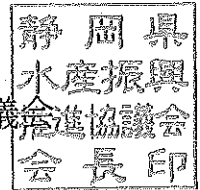 静岡県
水産振興
議会推進協議会
会長印